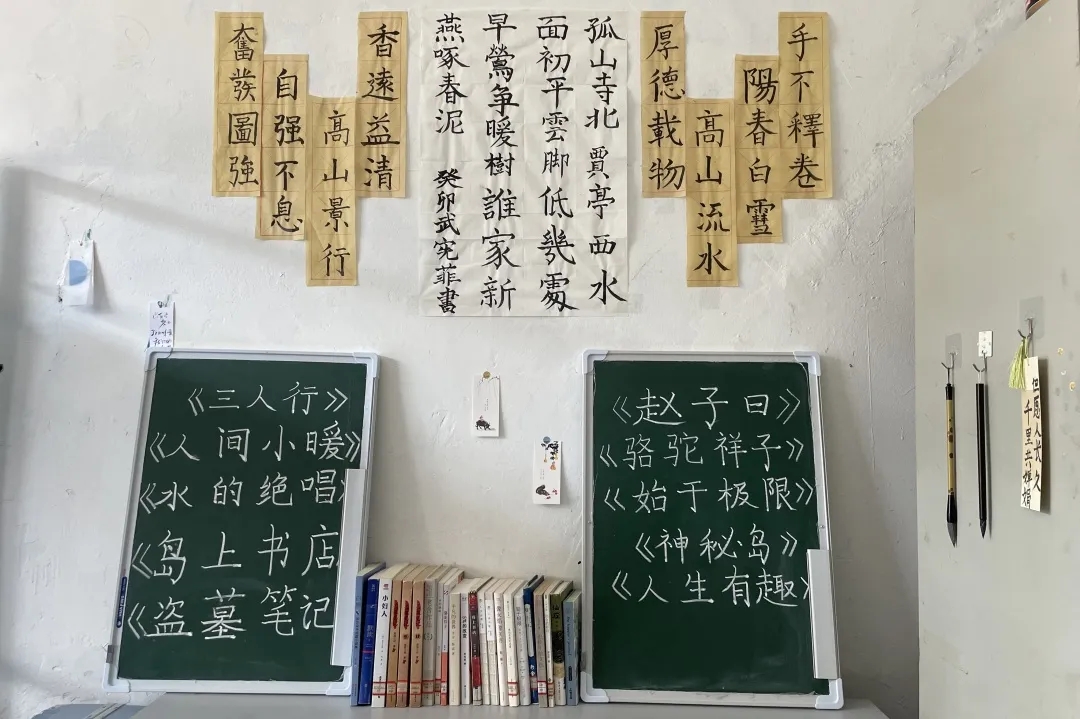 手不釋卷
陽春白雪
高山流水
厚德載物
孤山寺北 賈亭西水
面初平雲脚低幾處
早鶯争暖樹誰家新
燕啄春泥 癸卯武宪菲書
香遠益清
高山景行
自强不息
奮發圖強
《三人行》
《人间小暖》
《水的绝唱》
《岛上书店
《盗墓笔记
《赵子曰》
《骆驼祥子》
《始于极限》
《神秘岛》
《人生有趣》
但愿人长久
千里共婵娟
小妇人